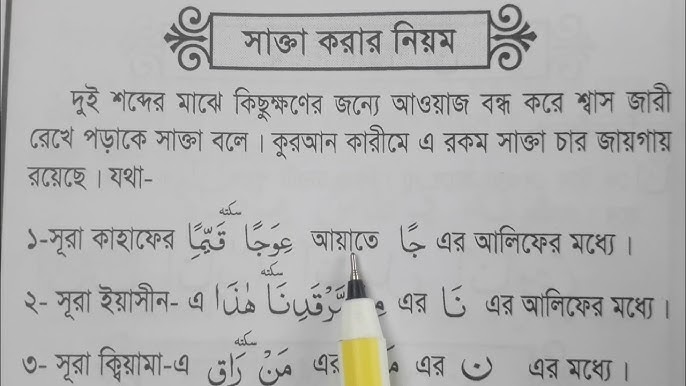 সাক্তা করার নিয়ম
দুই শব্দের মাঝে কিছুক্ষণের জন্যে আওয়াজ বন্ধ করে শ্বাস জারী
রেখে পড়াকে সাক্তা বলে । কুরআন কারীমে এ রকম সাক্তা চার জায়গায়
রয়েছে । যথা-
১-সূরা কাহাফের عِوَجًا سكته قَيِّمًا আয়াতে جًا এর আলিফের মধ্যে ।
২- সূরা ইয়াসীন- এ مَّرْقَدِنَا سكته هٰذَا এর نَا এর আলিফের মধ্যে ।
৩- সূরা ক্বিয়ামা-এ مَنْ سكته رَاقٍ এর এর ن এর মধ্যে ।